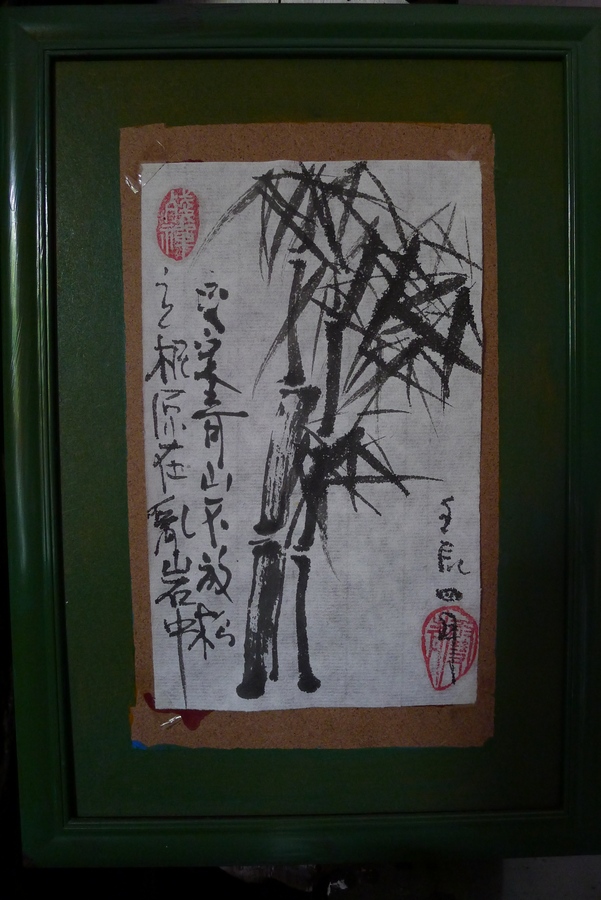 咬定青山不放松
立根原在亂岩中
壬辰四